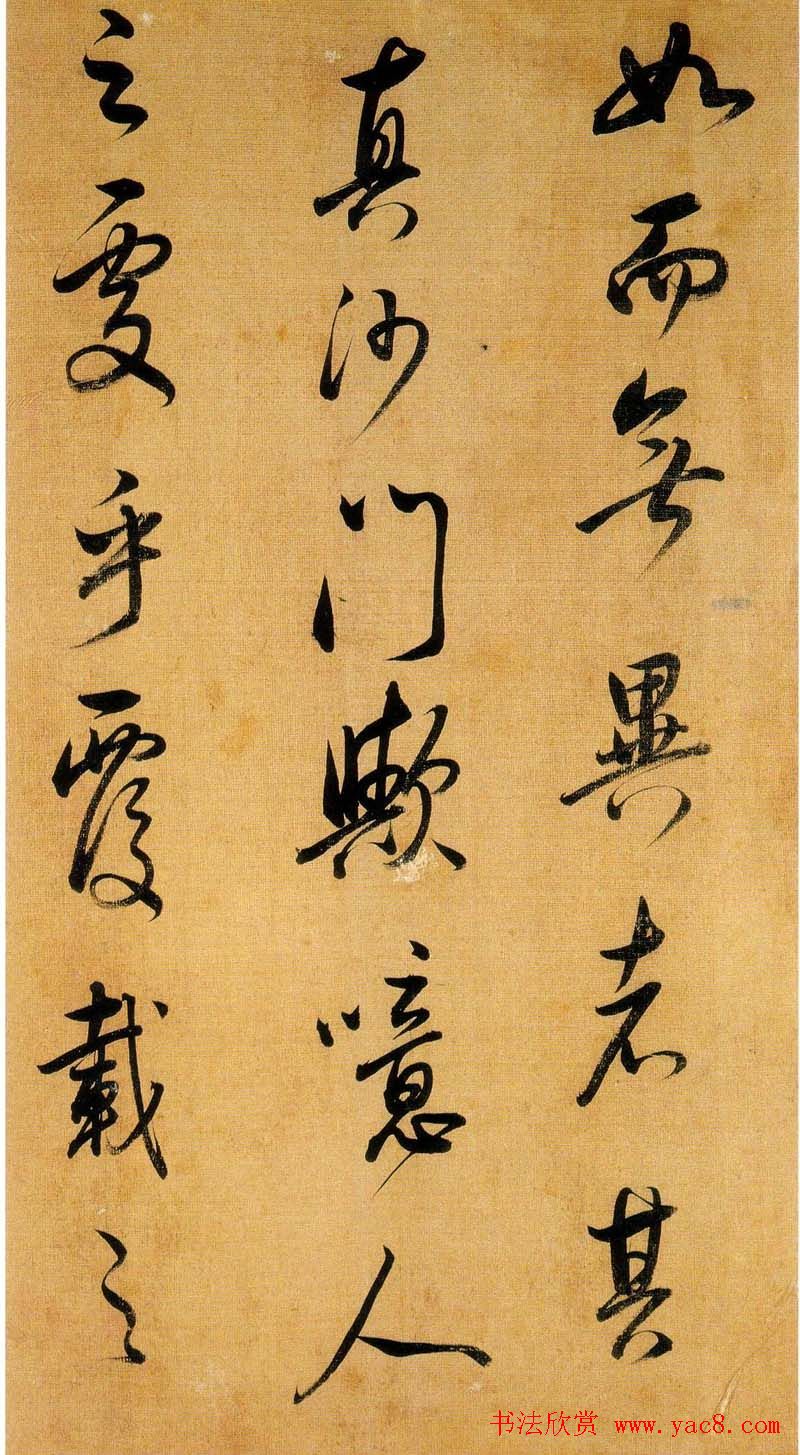 如而無異者其
真沙門歟噫人
之處乎覆載之
书法欣赏 www.yac8.com